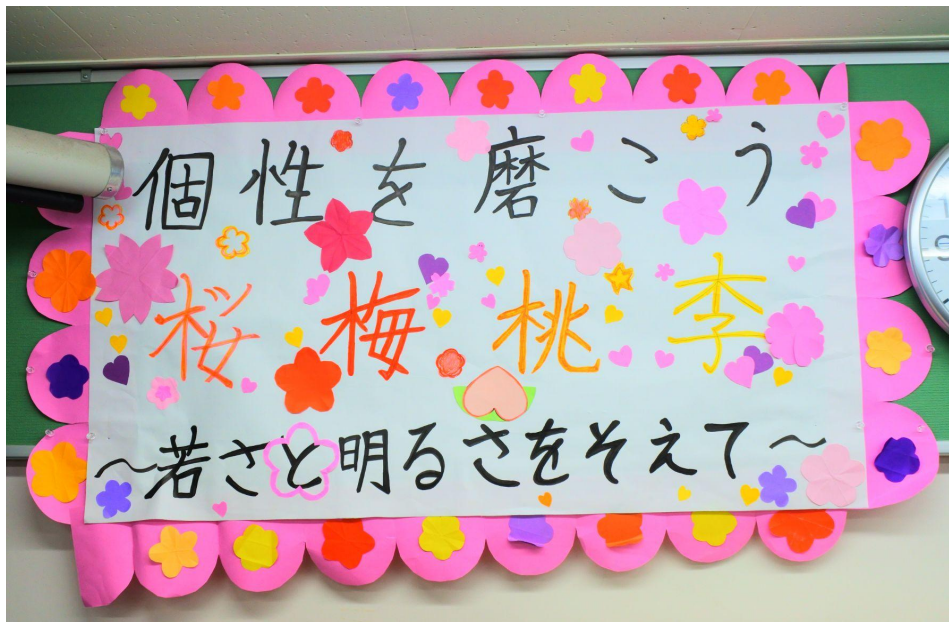 個性を磨こう
桜梅桃李
～若さと明るさをそえて～